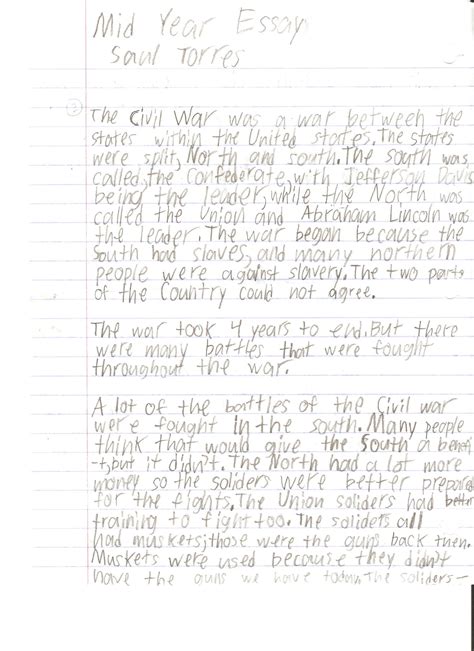 Mid Year Essay
Saul Torres
The Civil War was a war between the
states within the United states. The states
were split, North and south. The south was
called, the Confederate, with Jefferson Davis
being the leader, while the North was
called the Union and Abraham Lincoln was
the leader. The war began because the
South had slaves, and many northern
people were against slavery. The two parts
of the Country could not agree.
The war took 4 years to end. But there
were many battles that were fought
throughout the war.
A lot of the battles of the Civil war
were fought in the south. Many people
think that would give the South a benefi-
-t, but it didn't. The North had a lot more
money so the soliders were better prepared
for the fights. The Union soliders had better
training to fight too. The soliders all
had muskets; those were the guns back then.
Muskets were used because they didn't
have the guns we have today. The soliders-